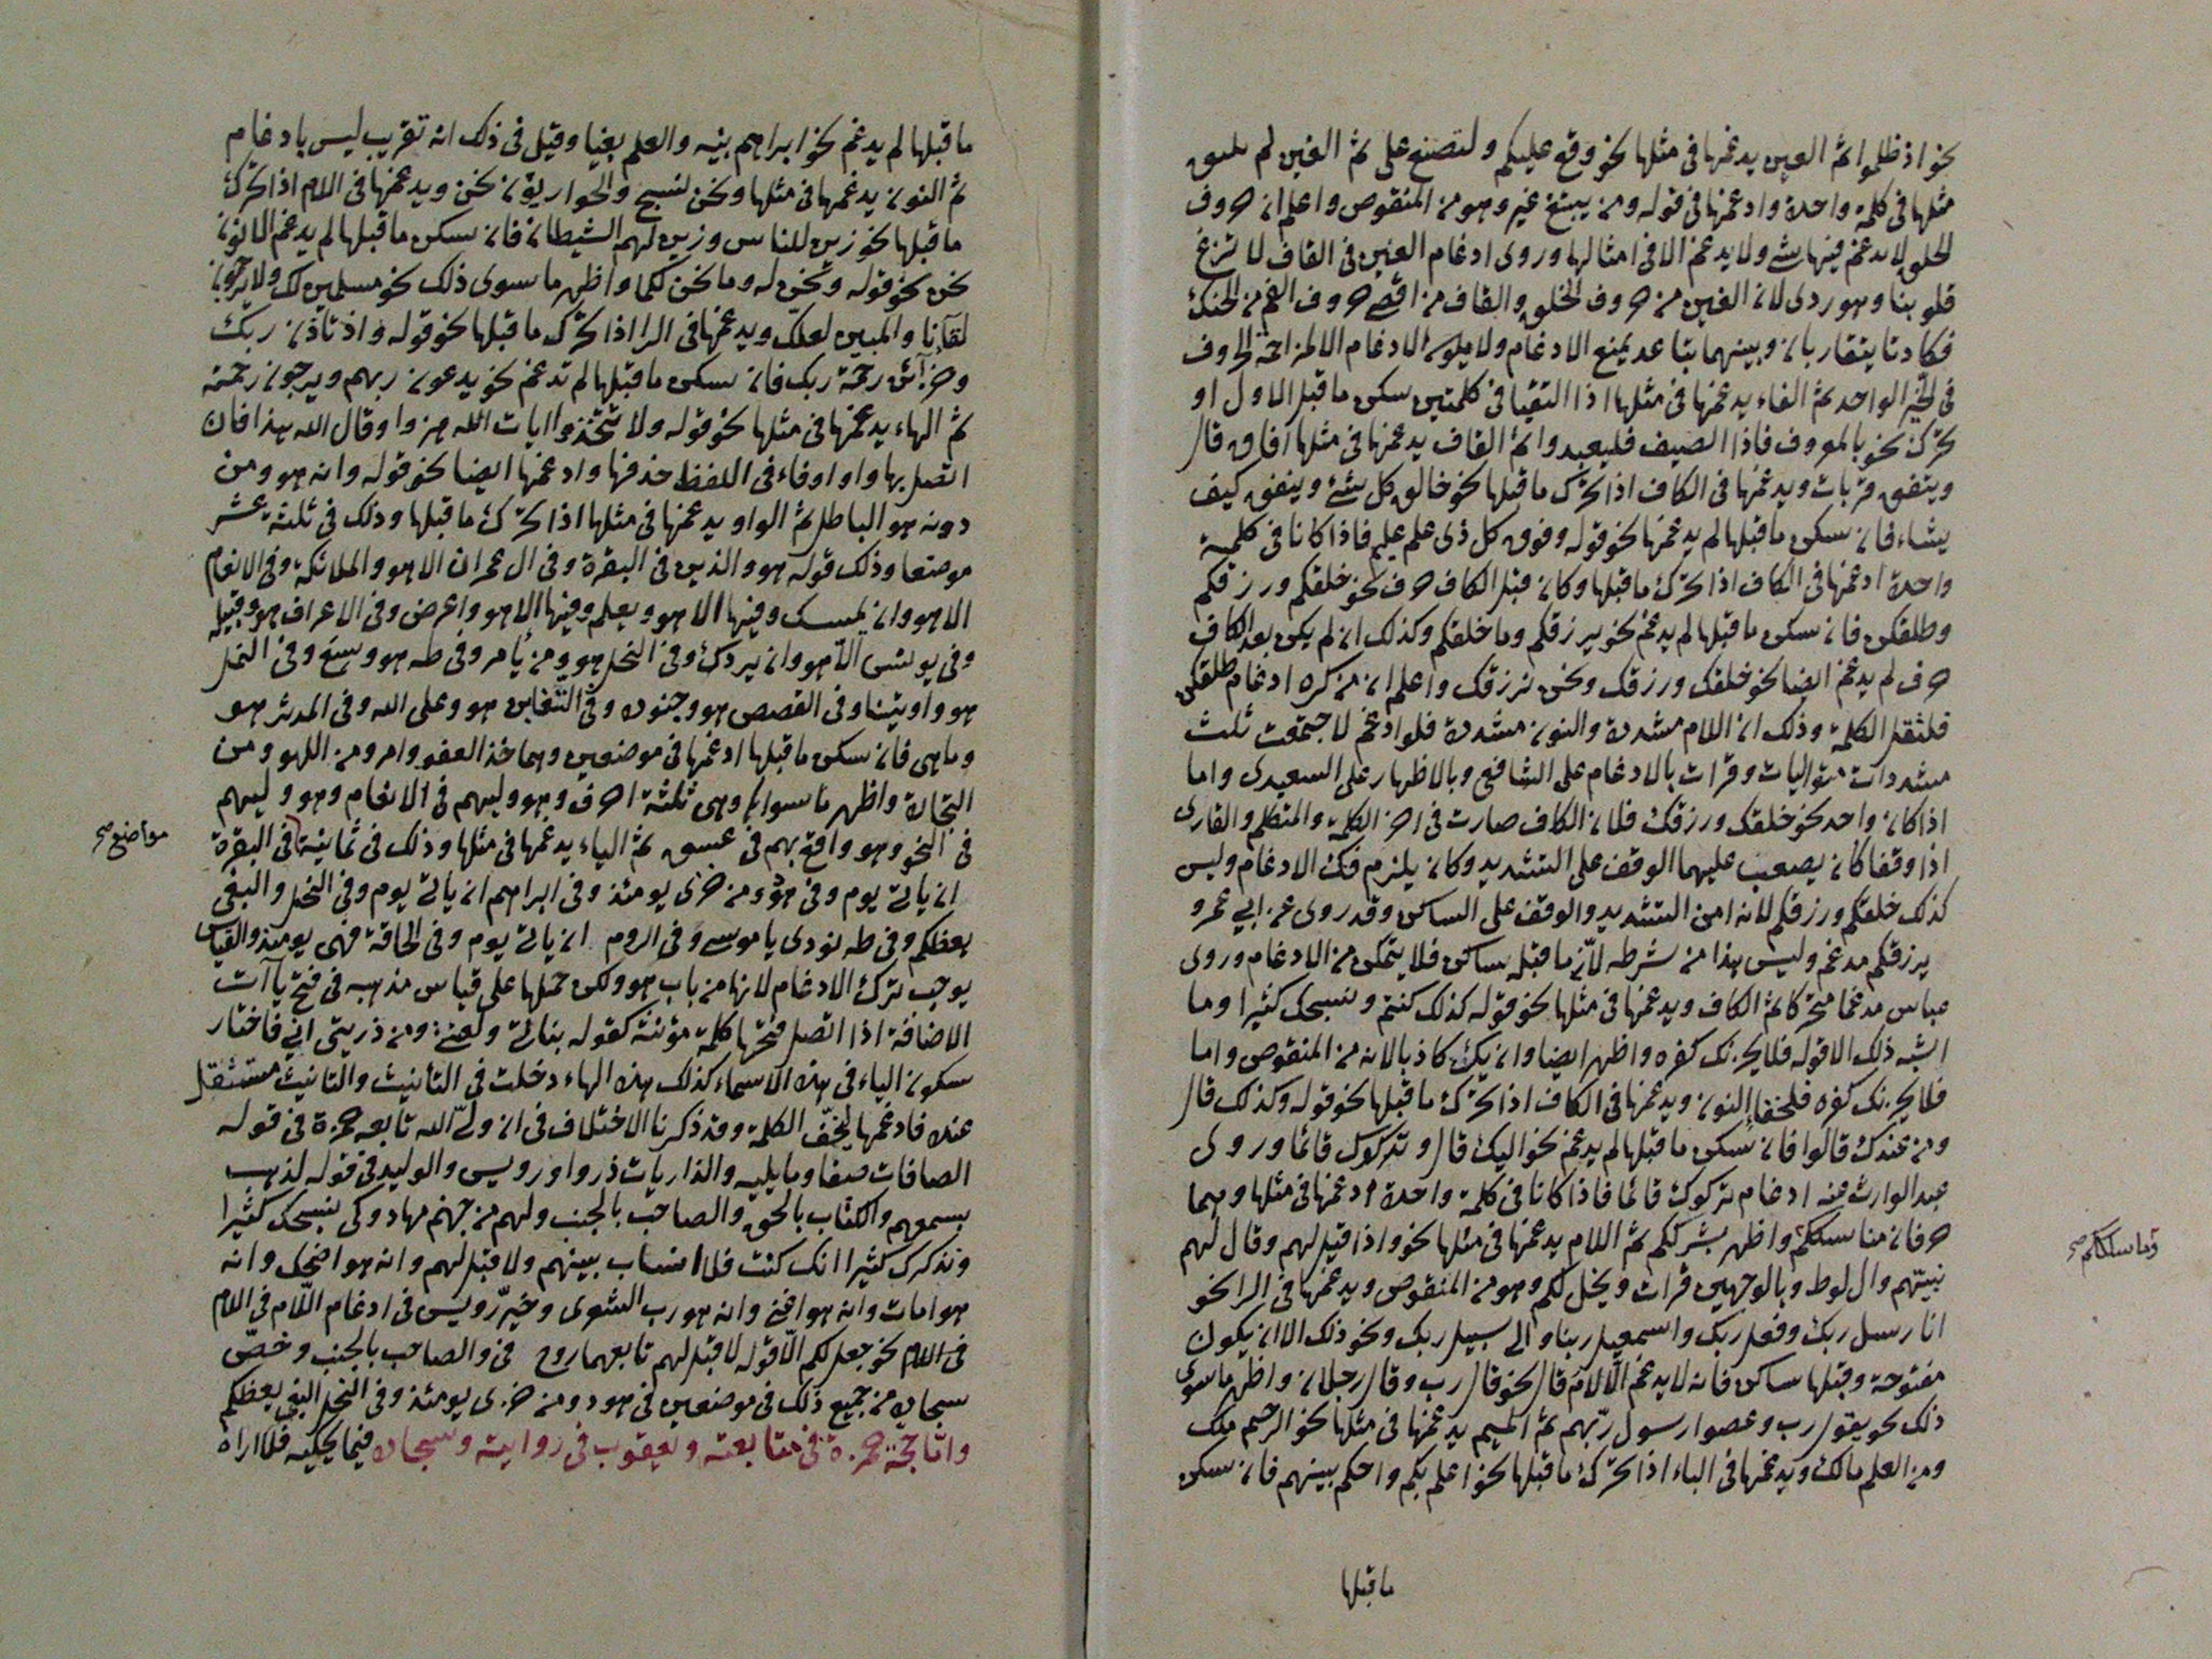 نحو اذ ظلموا ثم العين يدغمها فى مثلها نحو وقع عليكم ولتصنع على ثم الغين لم
مثلها فى كلمة واحدة وادغمها فى قوله ومن يبتغ غير وهو من المنقوص واعلم ان حروف
الحلق لا يدغم فيها شئ ولا يدغم الا فى امثالها وروى ادغام الغين فى القاف لا تزغ
قلوبنا وهو ردى لان الغين من حروف الحلق والقاف من اقصى حروف الفم من الحنك
فكادتا يتقاربان وبينهما تباعد يمنع الادغام ولا يكون الادغام الا لمزاحمة الحروف
فى الحيز الواحد ثم الفاء يدغمها فى مثلها اذا التقيا فى كلمتين سكن ما قبل الاول او
تحرك نحو بالمعروف فاذا الصيف فليعبدوا ثم القاف يدغمها فى مثلها افاق قال
وينفق قربات ويدغمها فى الكاف اذا تحرك ما قبلها نحو خالق كل شئ وينفق كيف
يشاء فان سكن ما قبلها لم يدغمها نحو قوله وفوق كل ذى علم عليم فاذا كانا فى كلمة
واحدة ادغمها فى الكاف اذا تحرك ما قبلها وكان قبل الكاف حرف نحو خلقكم ورزقكم
وطلقكن فان سكن ما قبلها لم يدغم نحو يرزقكم وما خلقكم وكذلك ان لم يكن بعد الكاف
حرف لم يدغم ايضا نحو خلقك ورزقك ونحن نرزقك واعلم ان من كره ادغام طلقكن
فلثقل الكلمة وذلك ان اللام مشددة والنون مشددة فلو ادغم لاجتمعت ثلث
مشددات متواليات وقرات بالادغام على الشافعى وبالاظهار على السعيدى واما
اذا كان واحد نحو خلقك ورزقك فلان الكاف صارت فى اخر الكلمة والمتكلم والقارى
اذا وقفا كان يصعب عليهما الوقف على التشديد وكان يلزم فك الادغام وليس
كذلك خلقكم ورزقكم لانه امن التشديد والوقف على الساكن وقد روى عن ابى عمرو
يرزقكم مدغم وليس هذا من شرطه لان ما قبله ساكن فلا يتمكن من الادغام وروى
عباس مدغما متحركا ثم الكاف ويدغمها فى مثلها نحو قوله كذلك كنتم ونسبحك كثيرا وما
اشبه ذلك الا قوله فلا يحزنك كفره واظهر ايضا وان يك كاذبا لانه من المنقوص واما
فلا يحزنك كفره فلخفاء النون ويدغمها فى الكاف اذا تحرك ما قبلها نحو قوله وكذلك قال
ومن عندك قالوا فان سكن ما قبلها لم يدغم نحو اليك قال وتركوك قائما وروى
عبد الوارث عنه ادغام تركوك قائما فاذا كانا فى كلمة واحدة ادغمها فى مثلها وهما
حرفان مناسككم واظهر بشرككم ثم اللام يدغمها فى مثلها نحو واذا قيل لهم وقال لهم
نبيهم وال لوط وبالوجهين قرات ويخل لكم وهو من المنقوص ويدغمها فى الرا نحو
انا رسل ربك وفعل ربك واسمعيل ربنا والى سبيل ربك ونحو ذلك الا ان يكون
مفتوحة وقبلها ساكن فانه لا يدغم الا لام قال نحو قال رب وقال رجلان واظهر ما سوى
ذلك نحو يقول رب وعصوا رسول ربهم ثم الميم يدغمها فى مثلها نحو الرحيم ملك
ومن العلم مالك ويدغمها فى الباء اذا تحرك ما قبلها نحو اعلم بكم واحكم بينهم فان سكن
ما قبلها
وما سلككم صح
ما قبلها لم يدغم نحو ابراهم بنيه والعلم بغيا وقيل فى ذلك انه تقريب ليس بادغام
ثم النون يدغمها فى مثلها ونحن لنسبح والحواريون نحن ويدغمها فى اللام اذا تحرك
ما قبلها نحو زين للناس وزين لهم الشيطان فان سكن ما قبلها لم يدغم الا نون
نحن نحو قوله ونحن له وما نحن لكما واظهر ما سوى ذلك نحو مسلمين لك ولا يرجون
لقآنا والمبين لعلك ويدغمها فى الرا اذا تحرك ما قبلها نحو قوله واذ تاذن ربك
وخزآئن رحمة ربك فان سكن ما قبلها لم تدغم نحو يدعون ربهم ويرجون رحمته
ثم الهاء يدغمها فى مثلها نحو قوله ولا تتخذوا ايات الله هزوا وقال الله هذا فان
اتصل بها واو او فاء فى اللفظ حذفها وادغمها ايضا نحو قوله وانه هو ومن
دونه هو الباطل ثم الواو يدغمها فى مثلها اذا تحرك ما قبلها وذلك فى ثلثة عشر
موضعا وذلك قوله هو والذين فى البقرة وفى ال عمران الا هو والملائكة وفى الانعام
الا هو وان يمسسك وفيها الا هو ويعلم وفيها الا هو واعرض وفى الاعراف هو وقبيله
وفى يونس الا هو وان يردك وفى النحل هو ومن يأمر وفى طه هو وسع وفى النمل
هو واوتينا وفى القصص هو وجنوده وفى التغابن هو وعلى الله وفى المدثر هو
وما هى فان سكن ما قبلها ادغمها فى موضعين وهما خذ العفو وامر ومن اللهو ومن
التجارة واظهر ما سواها وهى ثلثة احرف وهو وليهم فى الانعام وهو وليهم
فى النحل وهو واقع بهم فى عسق ثم الياء يدغمها فى مثلها وذلك فى ثمانية فى البقرة
ان ياتى يوم وفى هود ومن خزى يومئذ وفى ابراهيم ان ياتى يوم وفى النحل والبغى
يعظكم وفى طه نودى يا موسى وفى الروم ان ياتى يوم وفى الحاقة فهى يومئذ والقياس
يوجب ترك الادغام لانها من باب هو ولكن حملها على قياس مذهبه فى فتح ياآت
الاضافة اذا اتصل فتحها كلمة مؤنثة كقوله بناتى ولعنتى ومن ذريتى انى فاختار
سكون الياء فى هذه الاسماء كذلك هذه الهاء دخلت فى التانيث والتانيث مستثقل
عنده فادغمها ليخف الكلمة وقد ذكرنا الاختلاف فى ان ولى الله تابعه حمزة فى قوله
الصافات صفا وما يليه والذاريات ذروا ورويس والوليد فى قوله لذهب
بسمعهم والكتاب بالحق والصاحب بالجنب ولهم من جهنم مهاد وكى نسبحك كثيرا
ونذكرك كثيرا انك كنت فلا انساب بينهم ولا قبل لهم وانه هو اضحك وانه
هو امات وانه هو اغنى وانه هو رب الشعرى وخير رويس فى ادغام اللام فى اللام
فى اللام نحو جعل لكم الا قوله لا قبل لهم تابعهما روح فى والصاحب بالجنب وخص
سجاده من جميع ذلك فى موضعين فى هود ومن خزى يومئذ وفى النحل البغى يعظكم
وامّا حجة حمزة فى متابعته ويعقوب فى روايته وسجاده فيما يحكيه فلا اراه
مواضع صح